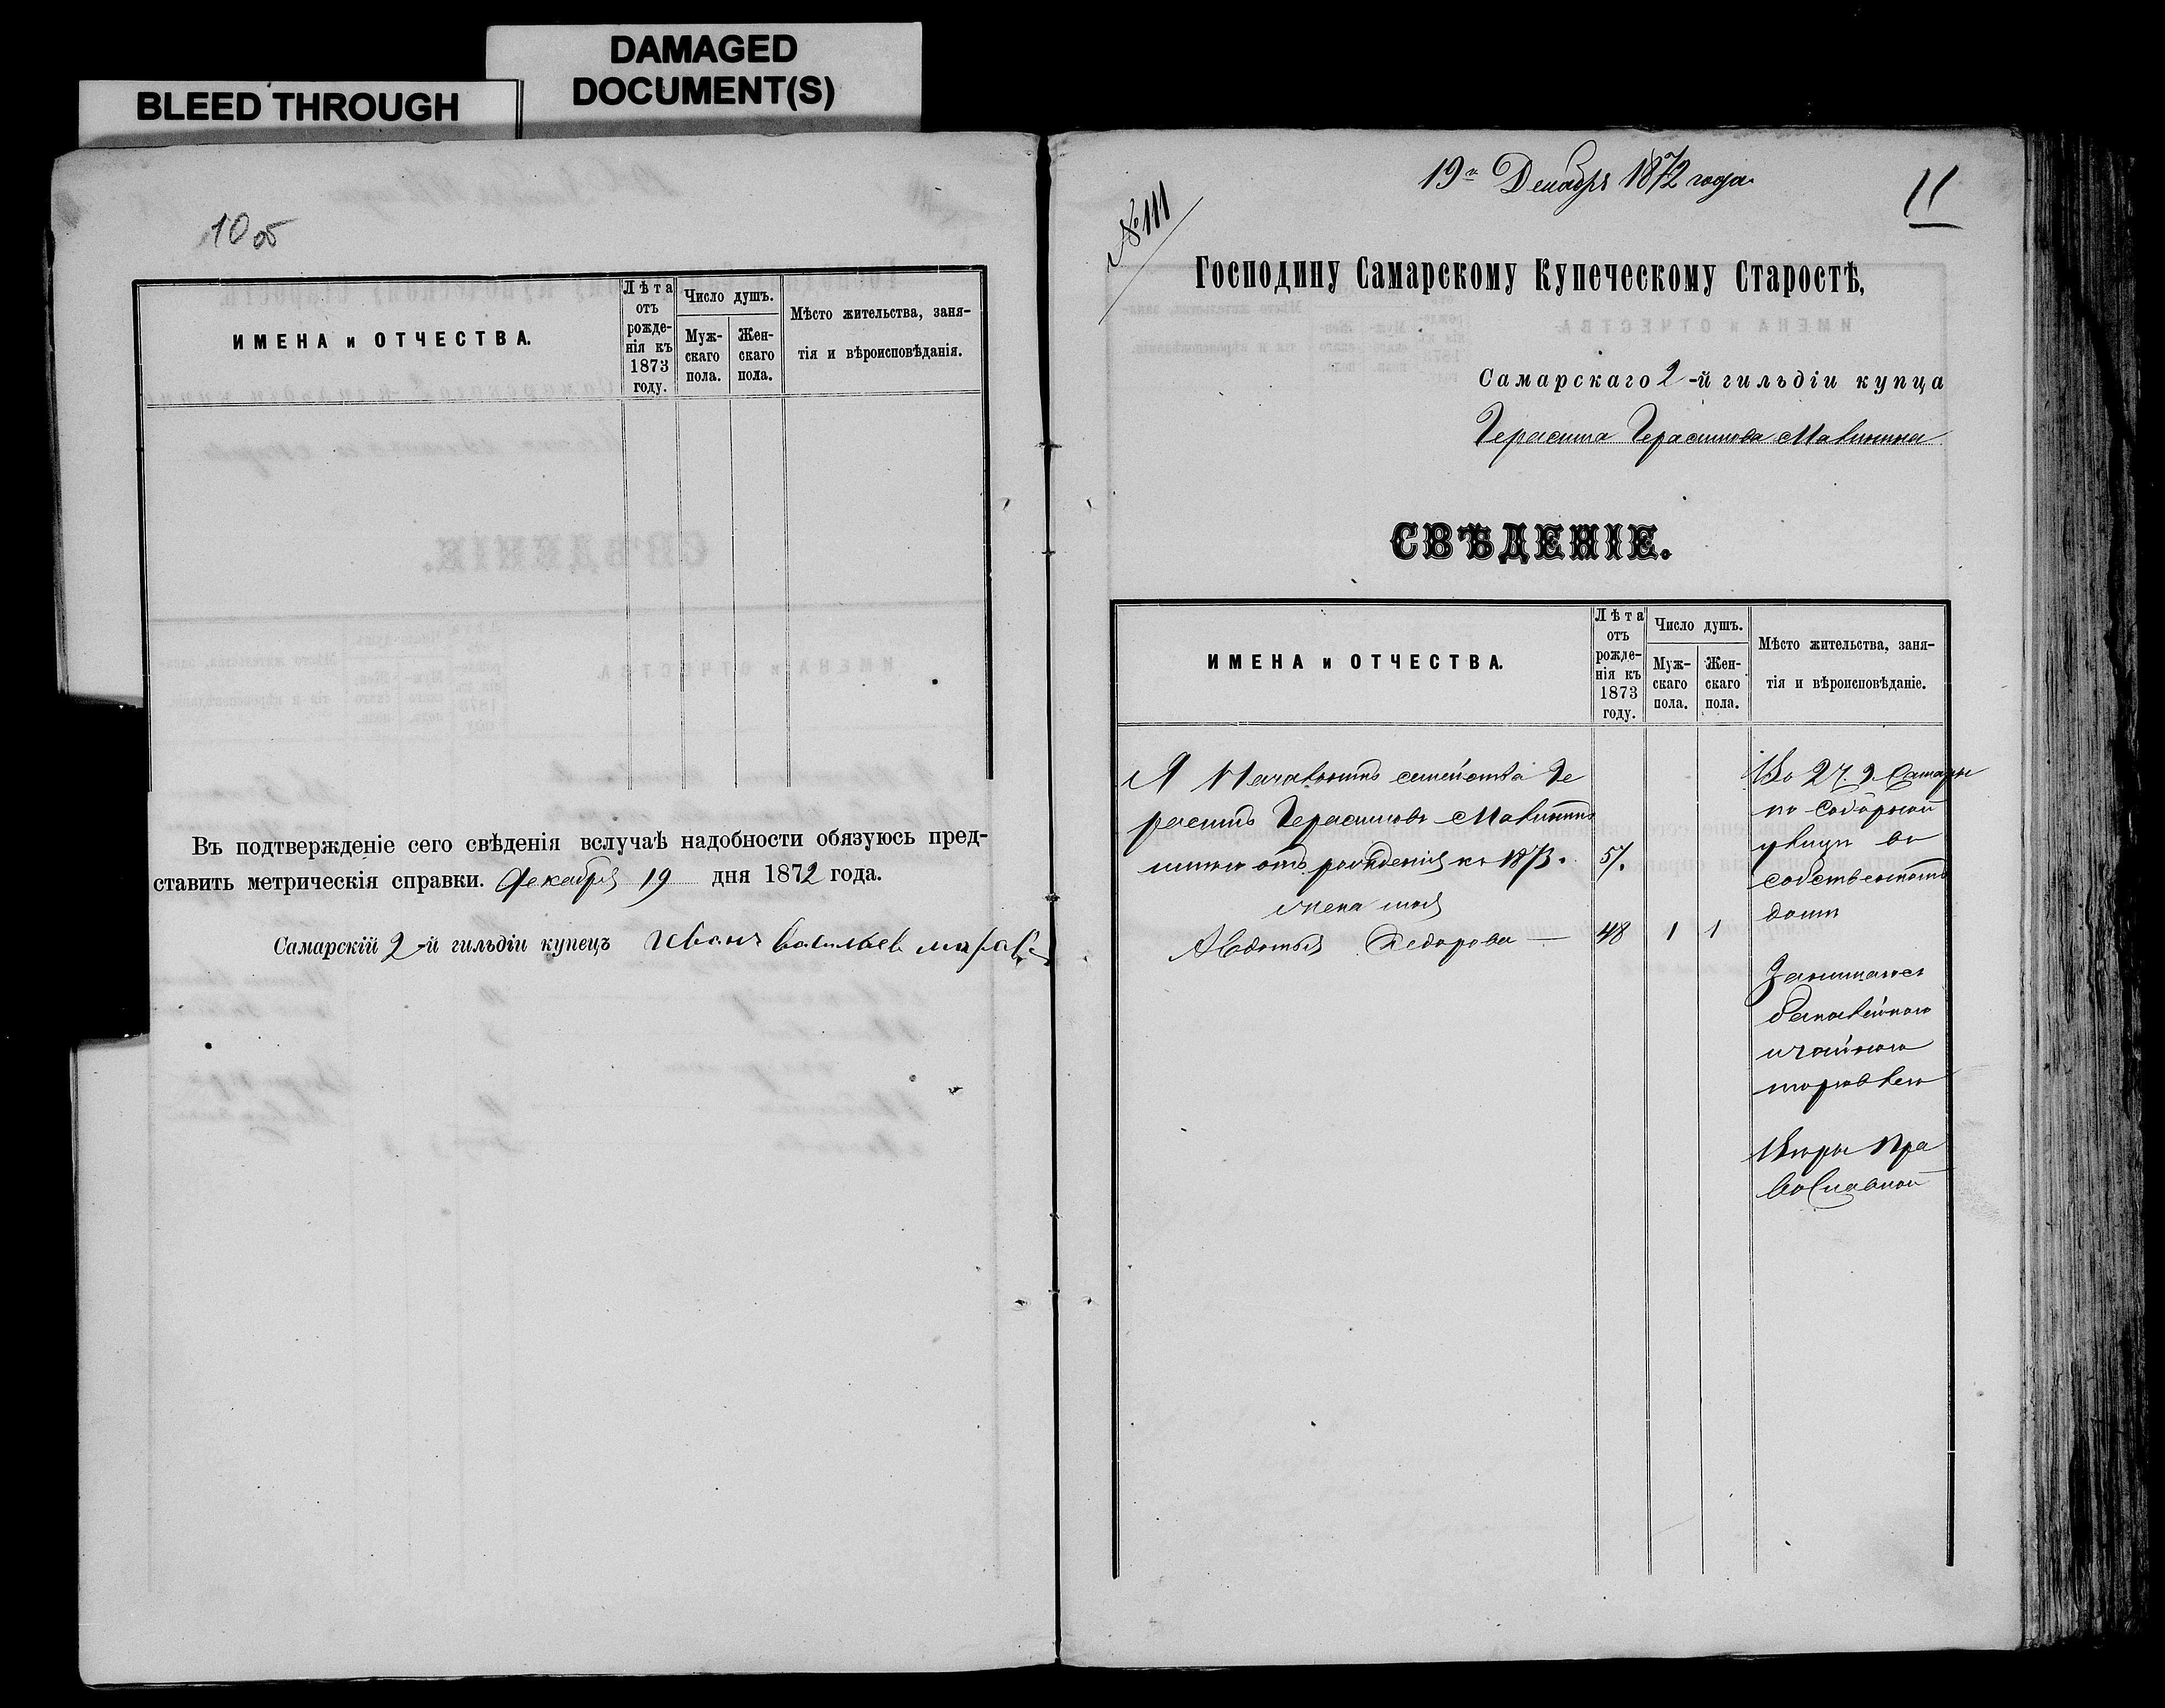 DAMAGED
DOCUMENT(S)
BLEED THROUGH
10 об
ИМЕНА и ОТЧЕСТВА.
Лѣта
отъ
рожде-
нія къ
1873
году.
Число душъ.
Муж-
скаго
пола.
Жен-
скаго
пола.
Мѣсто жительства, заня-
тія и вѣроисповѣданія.
Въ подтвержденіе сего свѣденія вслучаѣ надобности обязуюсь пред-
ставить метрическія справки. Декабря 19 дня 1872 года.
Самарскій 2-й гильдіи купецъ Иванъ Васильев
№ 111
19 Декабря 1872 года
11
Господину Самарскому Купеческому Старостѣ,
Самарскаго 2-й гильдіи купца
Герасима Герасимова
СВѢДЕНІЕ.
ИМЕНА и ОТЧЕСТВА.
Лѣта
отъ
рожде-
нія къ
1873
году.
Число душъ.
Муж-
скаго
пола.
Жен-
скаго
пола.
Мѣсто жительства, заня-
тія и вѣроисповѣданіе.
Я семейства Ге
расимъ Герасимовъ
отъ рожденія к 1873. 57.
жена моя
Авдотья Федорова — 48 1 1
Во 2 ч. г. Самары
по Соборной
улицы во
собственномъ
доми
Занимаюсь
бакалейною
и чайною
торговлею
Вѣры Пра
вославной